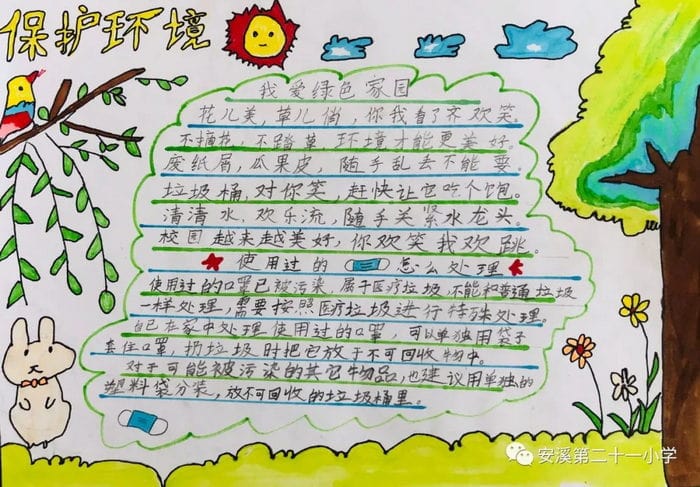 保护环境
我爱绿色家园
花儿美,草儿俏,你我看了齐欢笑。
不摘花,不踏草 环境才能更美好。
废纸屑,瓜果皮,随手乱丢不能要
垃圾桶,对你笑,赶快让它吃个饱。
清清水,欢乐流,随手关紧水龙头。
校园越来越美好,你欢笑我欢跳。
使用过的 怎么处理
使用过的口罩已被污染,属于医疗垃圾,不能和普通垃圾
一样处理,需要按照医疗垃圾进行特殊处理。
自己在家中处理使用过的口罩,可以单独用袋子
套住口罩,扔垃圾时把它放于不可回收物中。
对于可能被污染的其它物品,也建议用单独的
塑料袋分装,放不可回收的垃圾桶里。
安溪第二十一小学